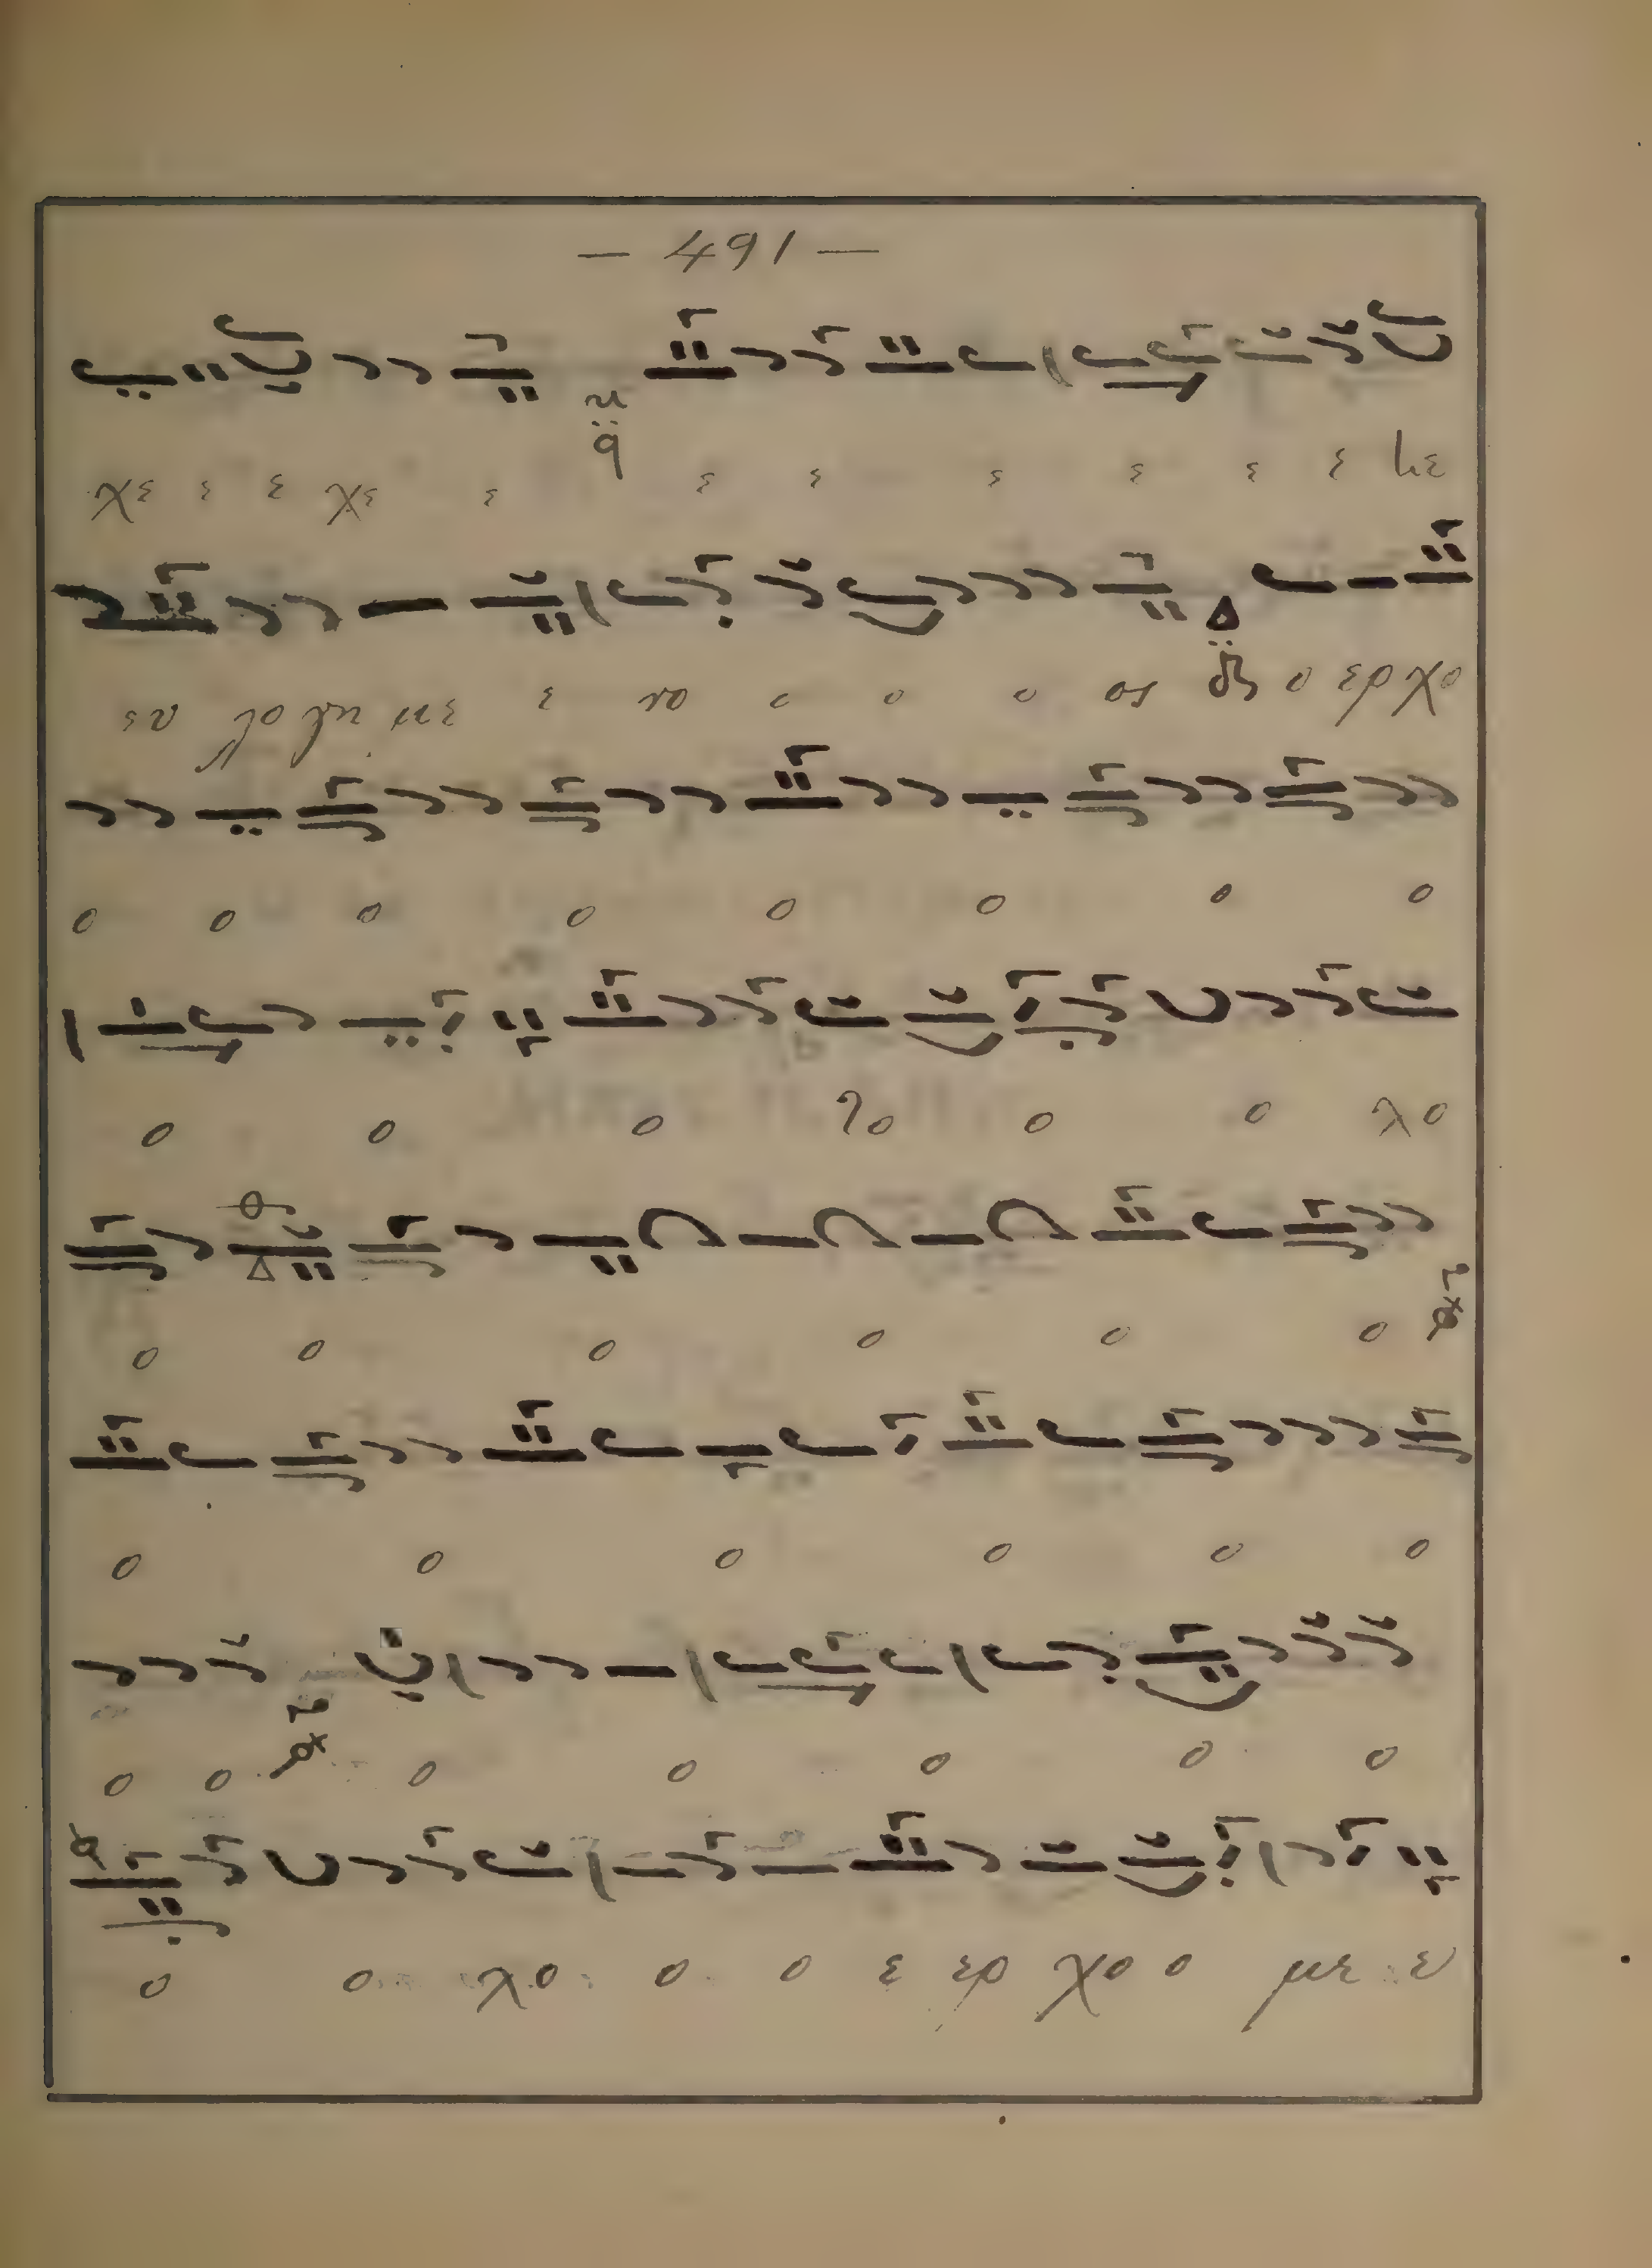 — 491 —
χε ε ε χε ε ε ε ε ε ε ε
ευ λο γη με ε νο ο ο ο ος ο ερ χο
ο ο ο ο ο ο ο ο
ο ο ο ο ο λο
ο ο ο ο ο ο
ο ο ο ο ο ο
ο ο ο ο ο ο ο
ο ο χο ο ο ε ερ χο ο με ε